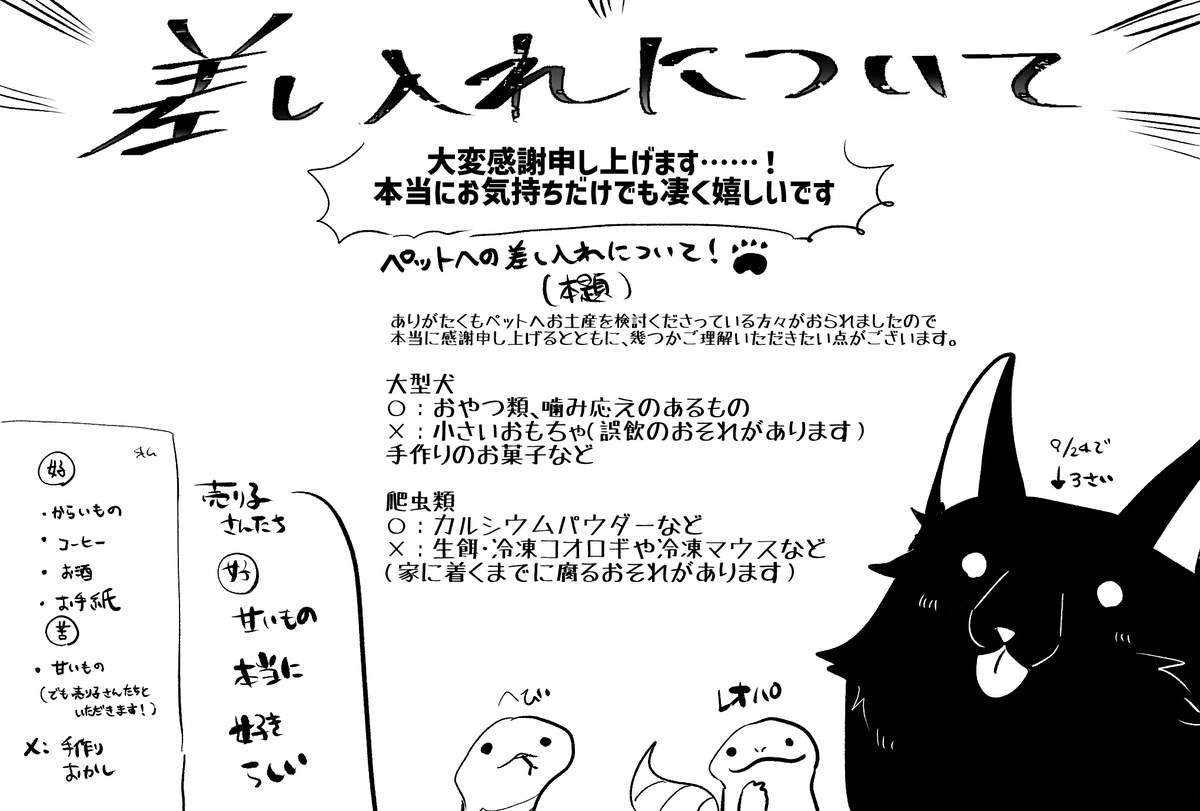 差し入れについて
大変感謝申し上げます……！
本当にお気持ちだけでも凄く嬉しいです
ペットへの差し入れについて！
（本題）
ありがたくもペットへお土産を検討くださっている方々がおられましたので
本当に感謝申し上げるとともに、幾つかご理解いただきたい点がございます。
大型犬
○：おやつ類、噛み応えのあるもの
×：小さいおもちゃ（誤飲のおそれがあります）
手作りのお菓子など
爬虫類
○：カルシウムパウダーなど
×：生餌・冷凍コオロギや冷凍マウスなど
（家に着くまでに腐るおそれがあります）
好
・からいもの
・コーヒー
・お酒
・お手紙
苦
・甘いもの
（でも売り子さんたちと
いただきます！）
×：手作り
おかし
売り子
さんたち
好
甘いもの
本当に
好き
らしい
へび
レオパ
9/24で
↓3さい